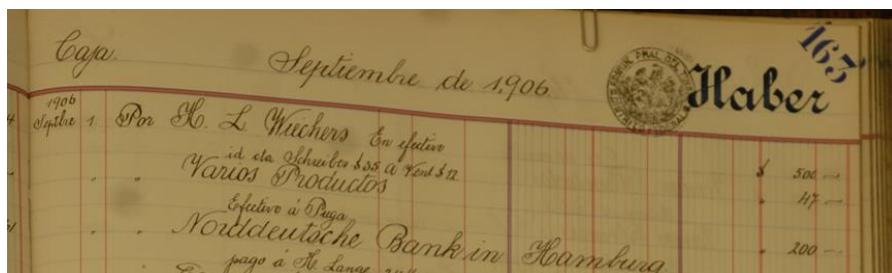 163
Caja. Septiembre de 1,906 Haber
1906
Septbre 1 Por H. L. Wiechers En efectivo $ 500 —
id cta Schreiber $35 a Vent $12 47 —
Varios Productos
Efectivo á Puga 200 —
Norddeutsche Bank in Hamburg
pago á H. Lange